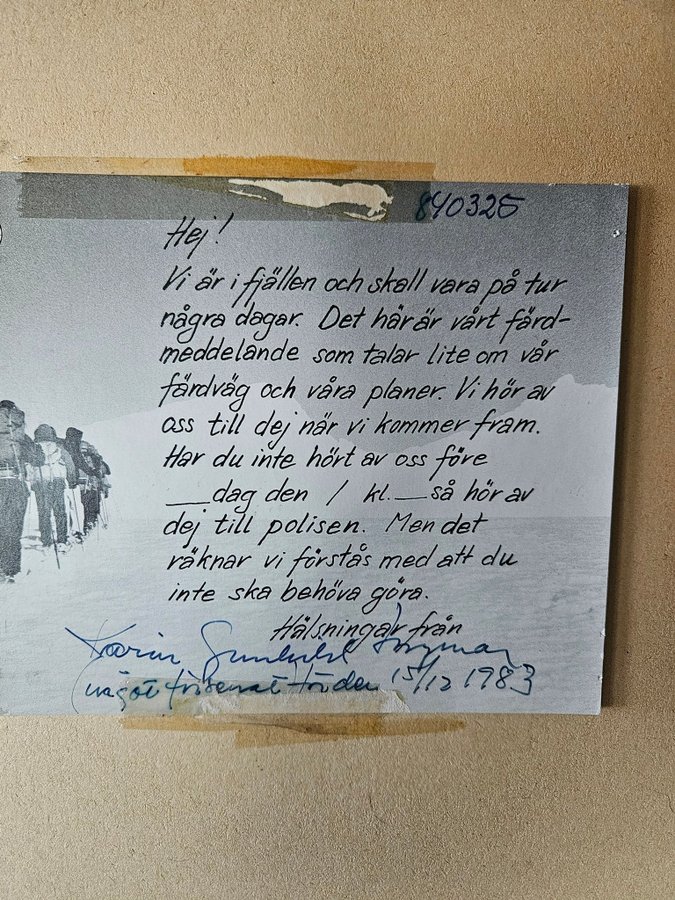 840325
Hej!
Vi är i fjällen och skall vara på tur
några dagar. Det här är vårt färd-
meddelande som talar lite om vår
färdväg och våra planer. Vi hör av
oss till dej när vi kommer fram.
Har du inte hört av oss före
___dag den / kl.___så hör av
dej till polisen. Men det
räknar vi förstås med att du
inte ska behöva göra.
Hälsningar från
Karin Gunhild
något försenat 15/12 1983